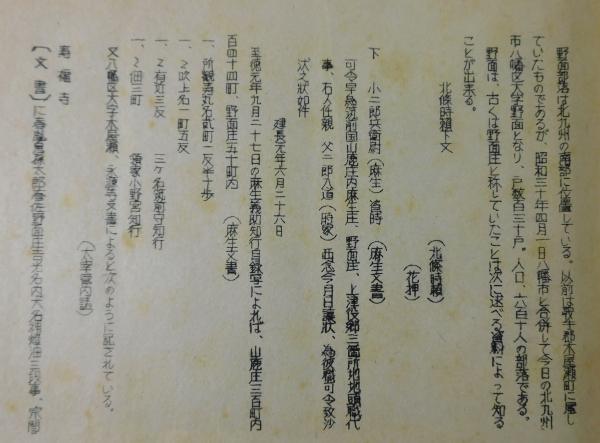 野面部落は北九州の南部に位置している。以前は鞍手郡木屋瀬町に属し
ていたものであるが、昭和三十年四月一日八幡市と合併して今日の北九州
市八幡区大字野面となり、戸数百三十戸。人口、六百十人の部落である。
野面は、古くは野面庄と称していたことは次に述べる資料によって知る
ことが出来る。
北條時頼下文
(北條時頼)
(花押)
下 小二郎兵衛尉(麻生)資時 (麻生文書)
可令早為筑前国山鹿庄内麻生庄、野面庄、上津役郷三箇所地地頭職代
事、右人任親父二郎入道(時家)西念今月日譲状、為彼職可令致沙
汰之状如件
建長元年六月二十六日
至徳元年九月二十七日の麻生義助知行目録写によれば、山鹿庄三百町内
百四十四町、野面庄五十町内 (麻生文書)
一、所観寿丸名貳町一反半十歩
一、〃吹上名一町五反
一、〃有近三反 三ケ名筑前守知行
一、〃佃三町 領家小野宮知行
又八幡区大字木屋瀬、永源寺文書によると次のように記されている。
(太宰管内誌)
寿福寺
〔文書〕に